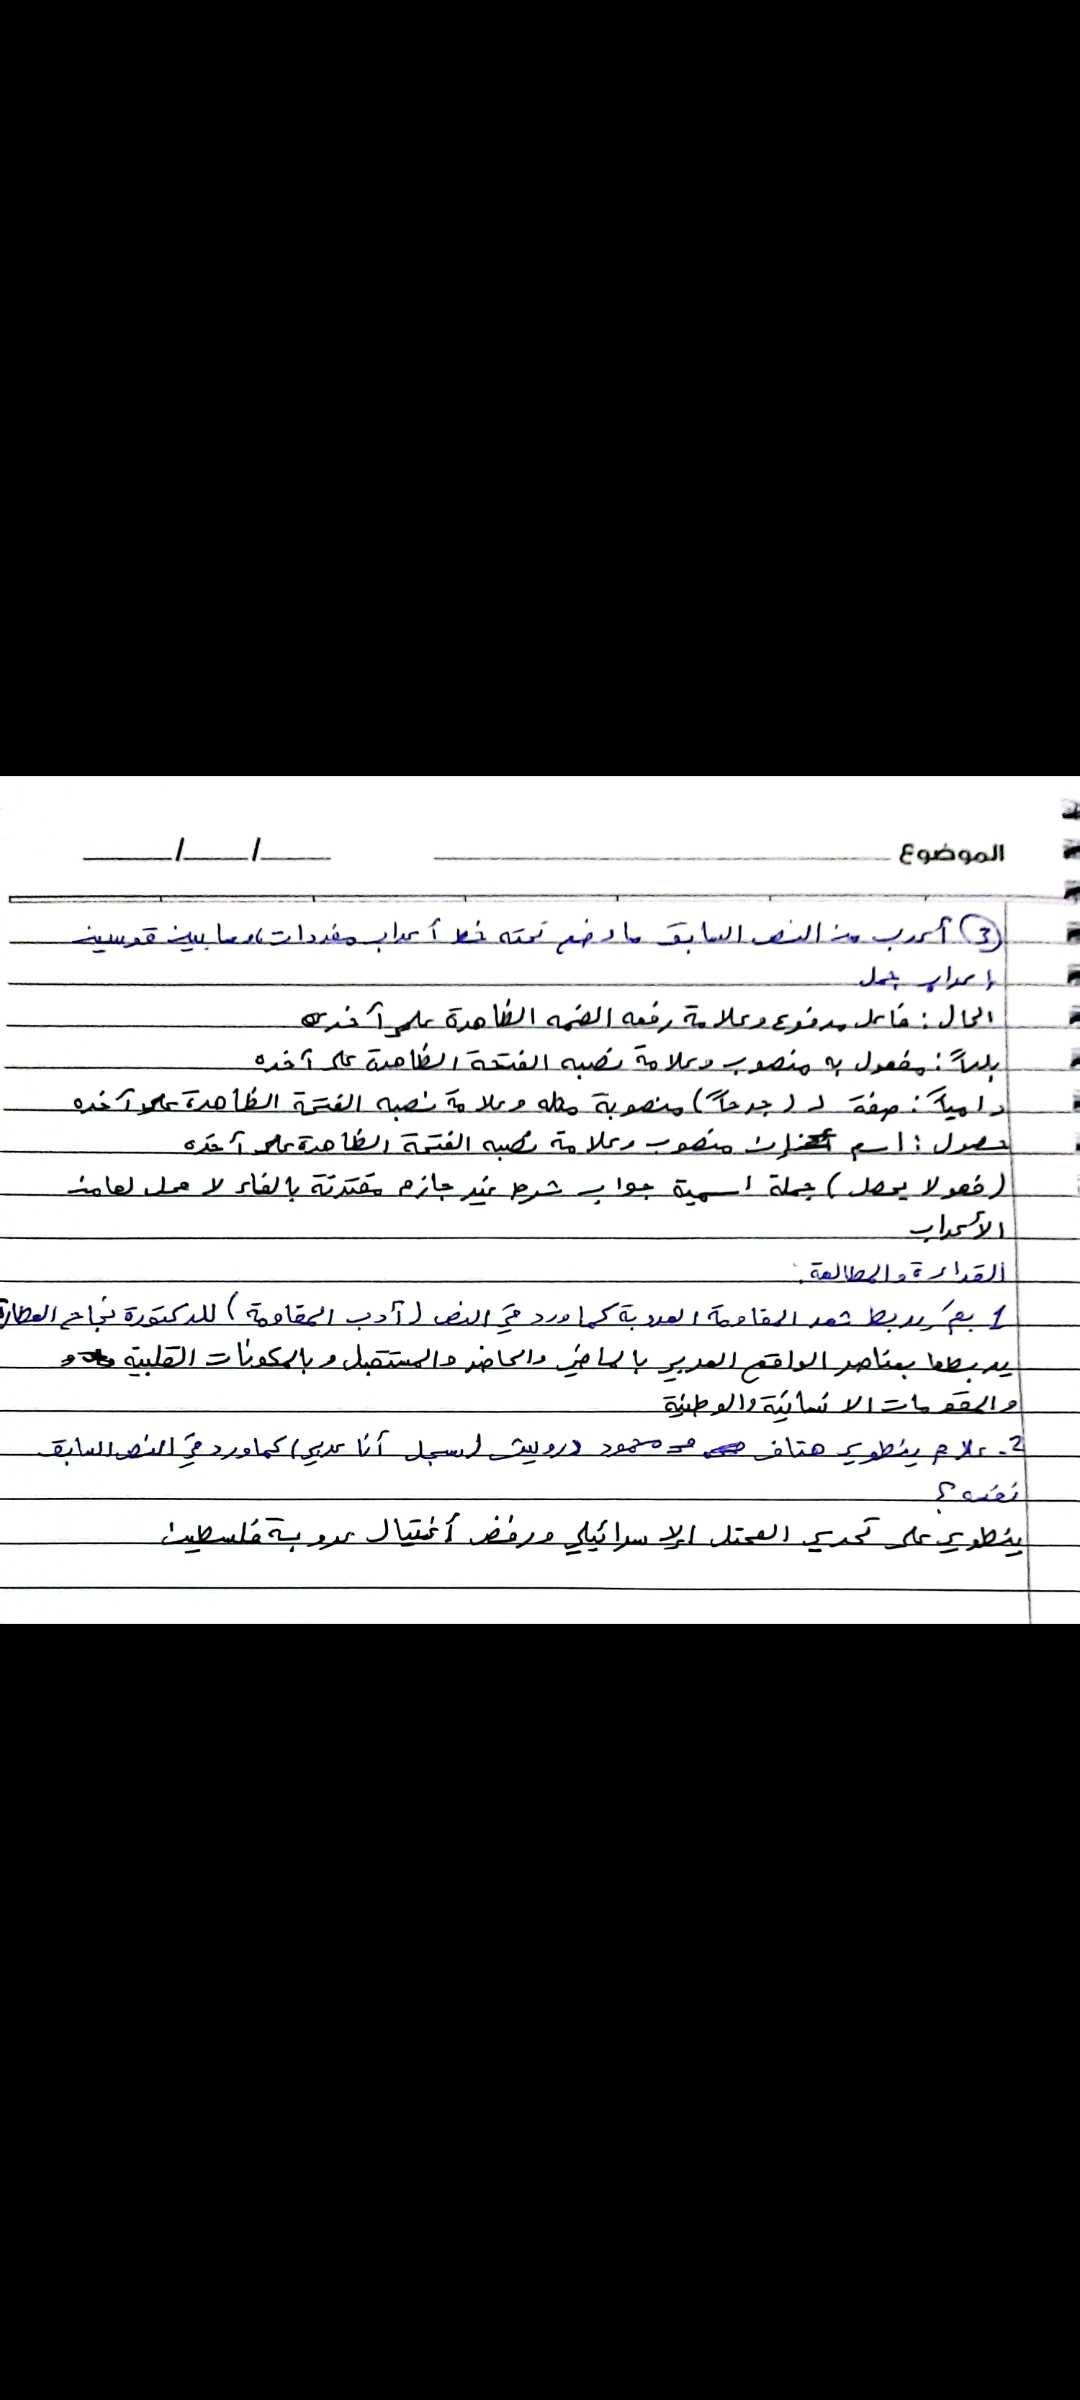 الموضوع ____ / ____ / ____
③ أعرب من النص السابق ما وضع تحته خط أعراب مفردات، وما بين قوسين
إعراب جمل
الحال: فاعل مرفوع وعلامة رفعه الضمه الظاهرة على آخره
بلداً: مفعول به منصوب وعلامة نصبه الفتحة الظاهرة على آخره
دامياً: صفة لـ (جرحاً) منصوبة مثله وعلامة نصبه الفتحة الظاهرة على آخره
حصول: اسم إن منصوب وعلامة نصبه الفتحة الظاهرة على آخره
(فهو لا يحصل) جملة اسمية جواب شرط غير جازم مقترنة بالفاء لا محل لها من
الأعراب
القراءة والمطالعة:
1 بمَ يربط شعر المقاومة العربية كما ورد في النص (أدب المقاومة) للدكتورة نجاح العطار
يربطها بعناصر الواقع العربي بالماضي والحاضر والمستقبل وبالمكونات القلبية و
والمقومات الانسانية والوطنية
2- علام ينطوي هتاف محمود درويش (سجل أنا عربي) كما ورد في النص السابق
نفسه؟
ينطوي على تحدي المحتل الإسرائيلي ورفض أغتيال عروبة فلسطين